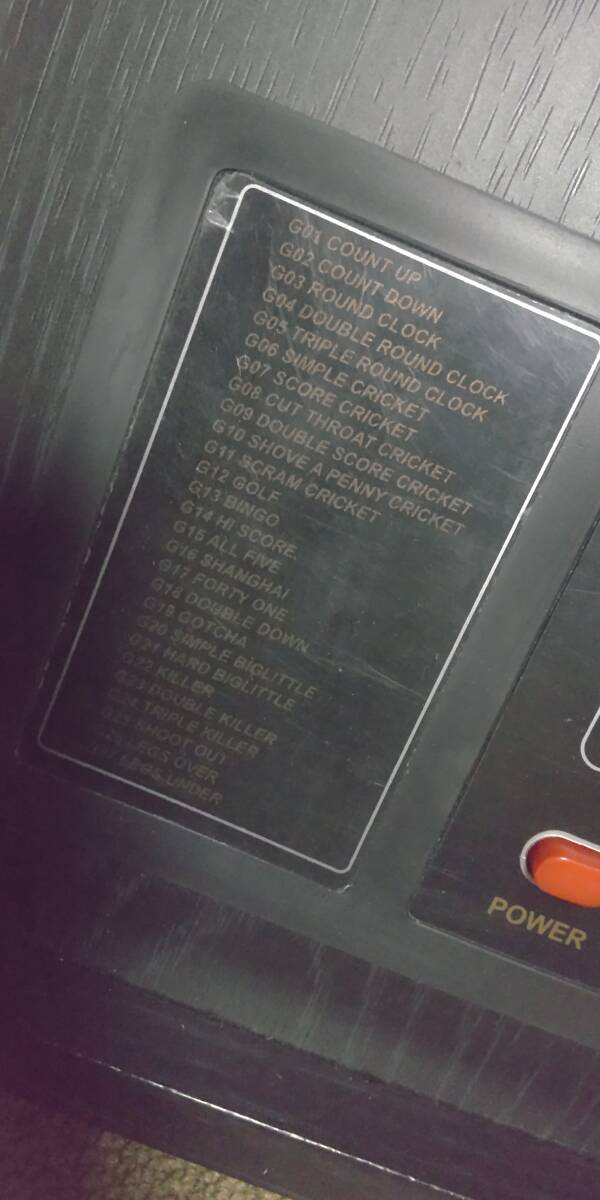 G01 COUNT UP
G02 COUNT DOWN
G03 ROUND CLOCK
G04 DOUBLE ROUND CLOCK
G05 TRIPLE ROUND CLOCK
G06 SIMPLE CRICKET
G07 SCORE CRICKET
G08 CUT THROAT CRICKET
G09 DOUBLE SCORE CRICKET
G10 SHOVE A PENNY CRICKET
G11 SCRAM CRICKET
G12 GOLF
G13 BINGO
G14 HI SCORE
G15 ALL FIVE
G16 SHANGHAI
G17 FORTY ONE
G18 DOUBLE DOWN
G19 GOTCHA
G20 SIMPLE BIGLITTLE
G21 HARD BIGLITTLE
G22 KILLER
G23 DOUBLE KILLER
TRIPLE KILLER
SHOOT OUT
LEGS OVER
LEGS UNDER
POWER